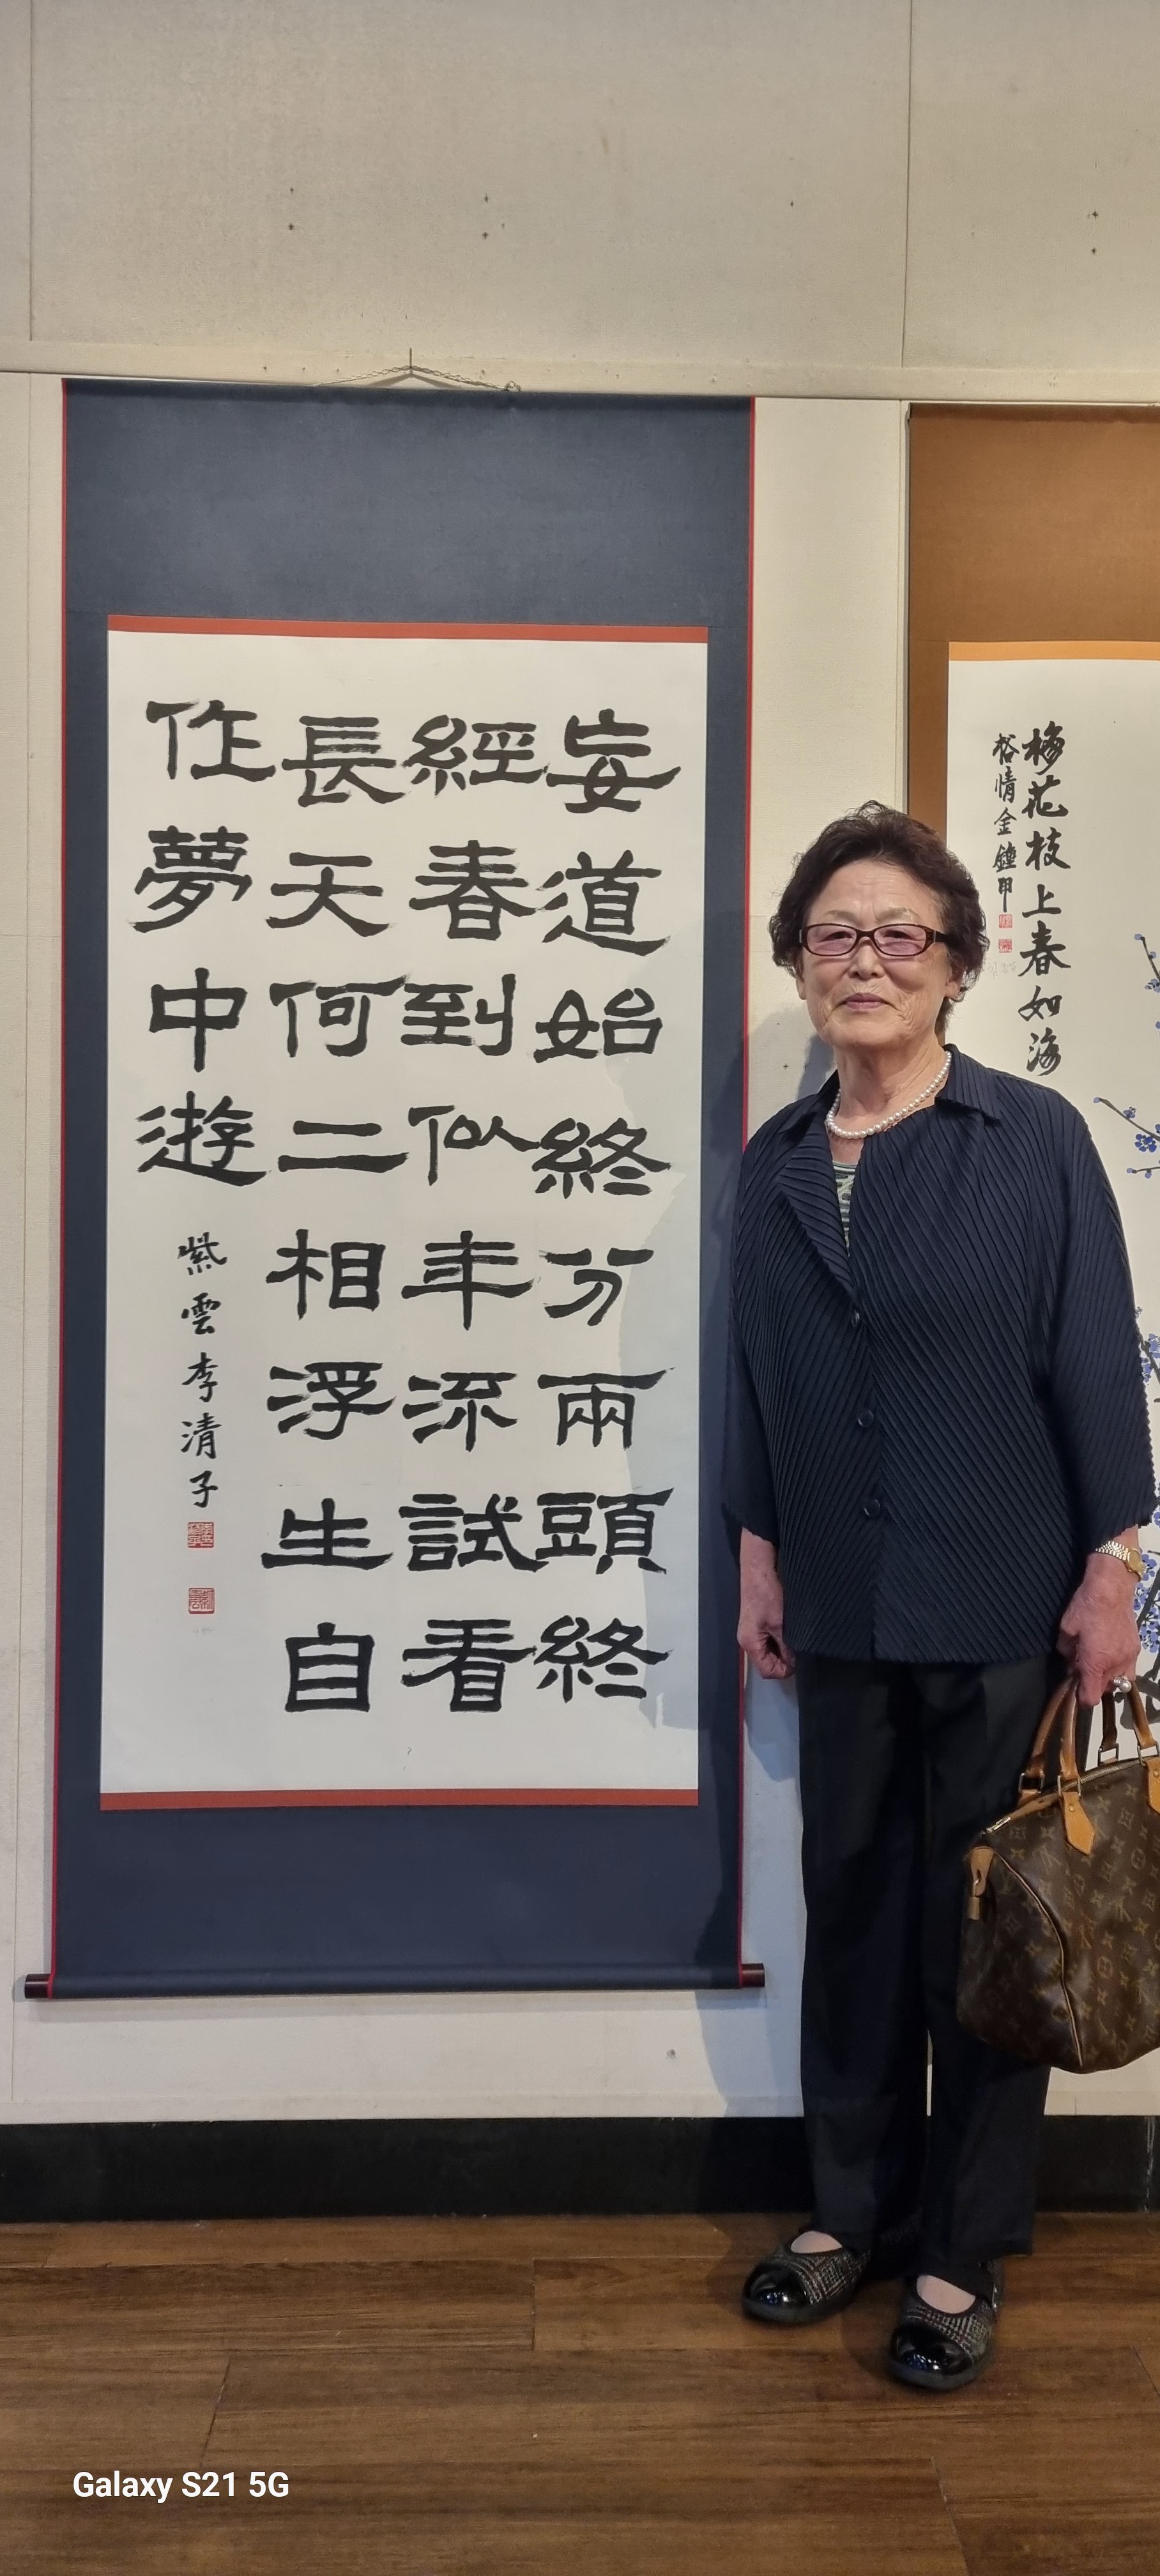 妄道始終分兩頭終
經春到似年流試看
長天何二相浮生自
作夢中遊
紫雲李清子
梅花枝上春如海
裕情金鍾甲
Galaxy S21 5G